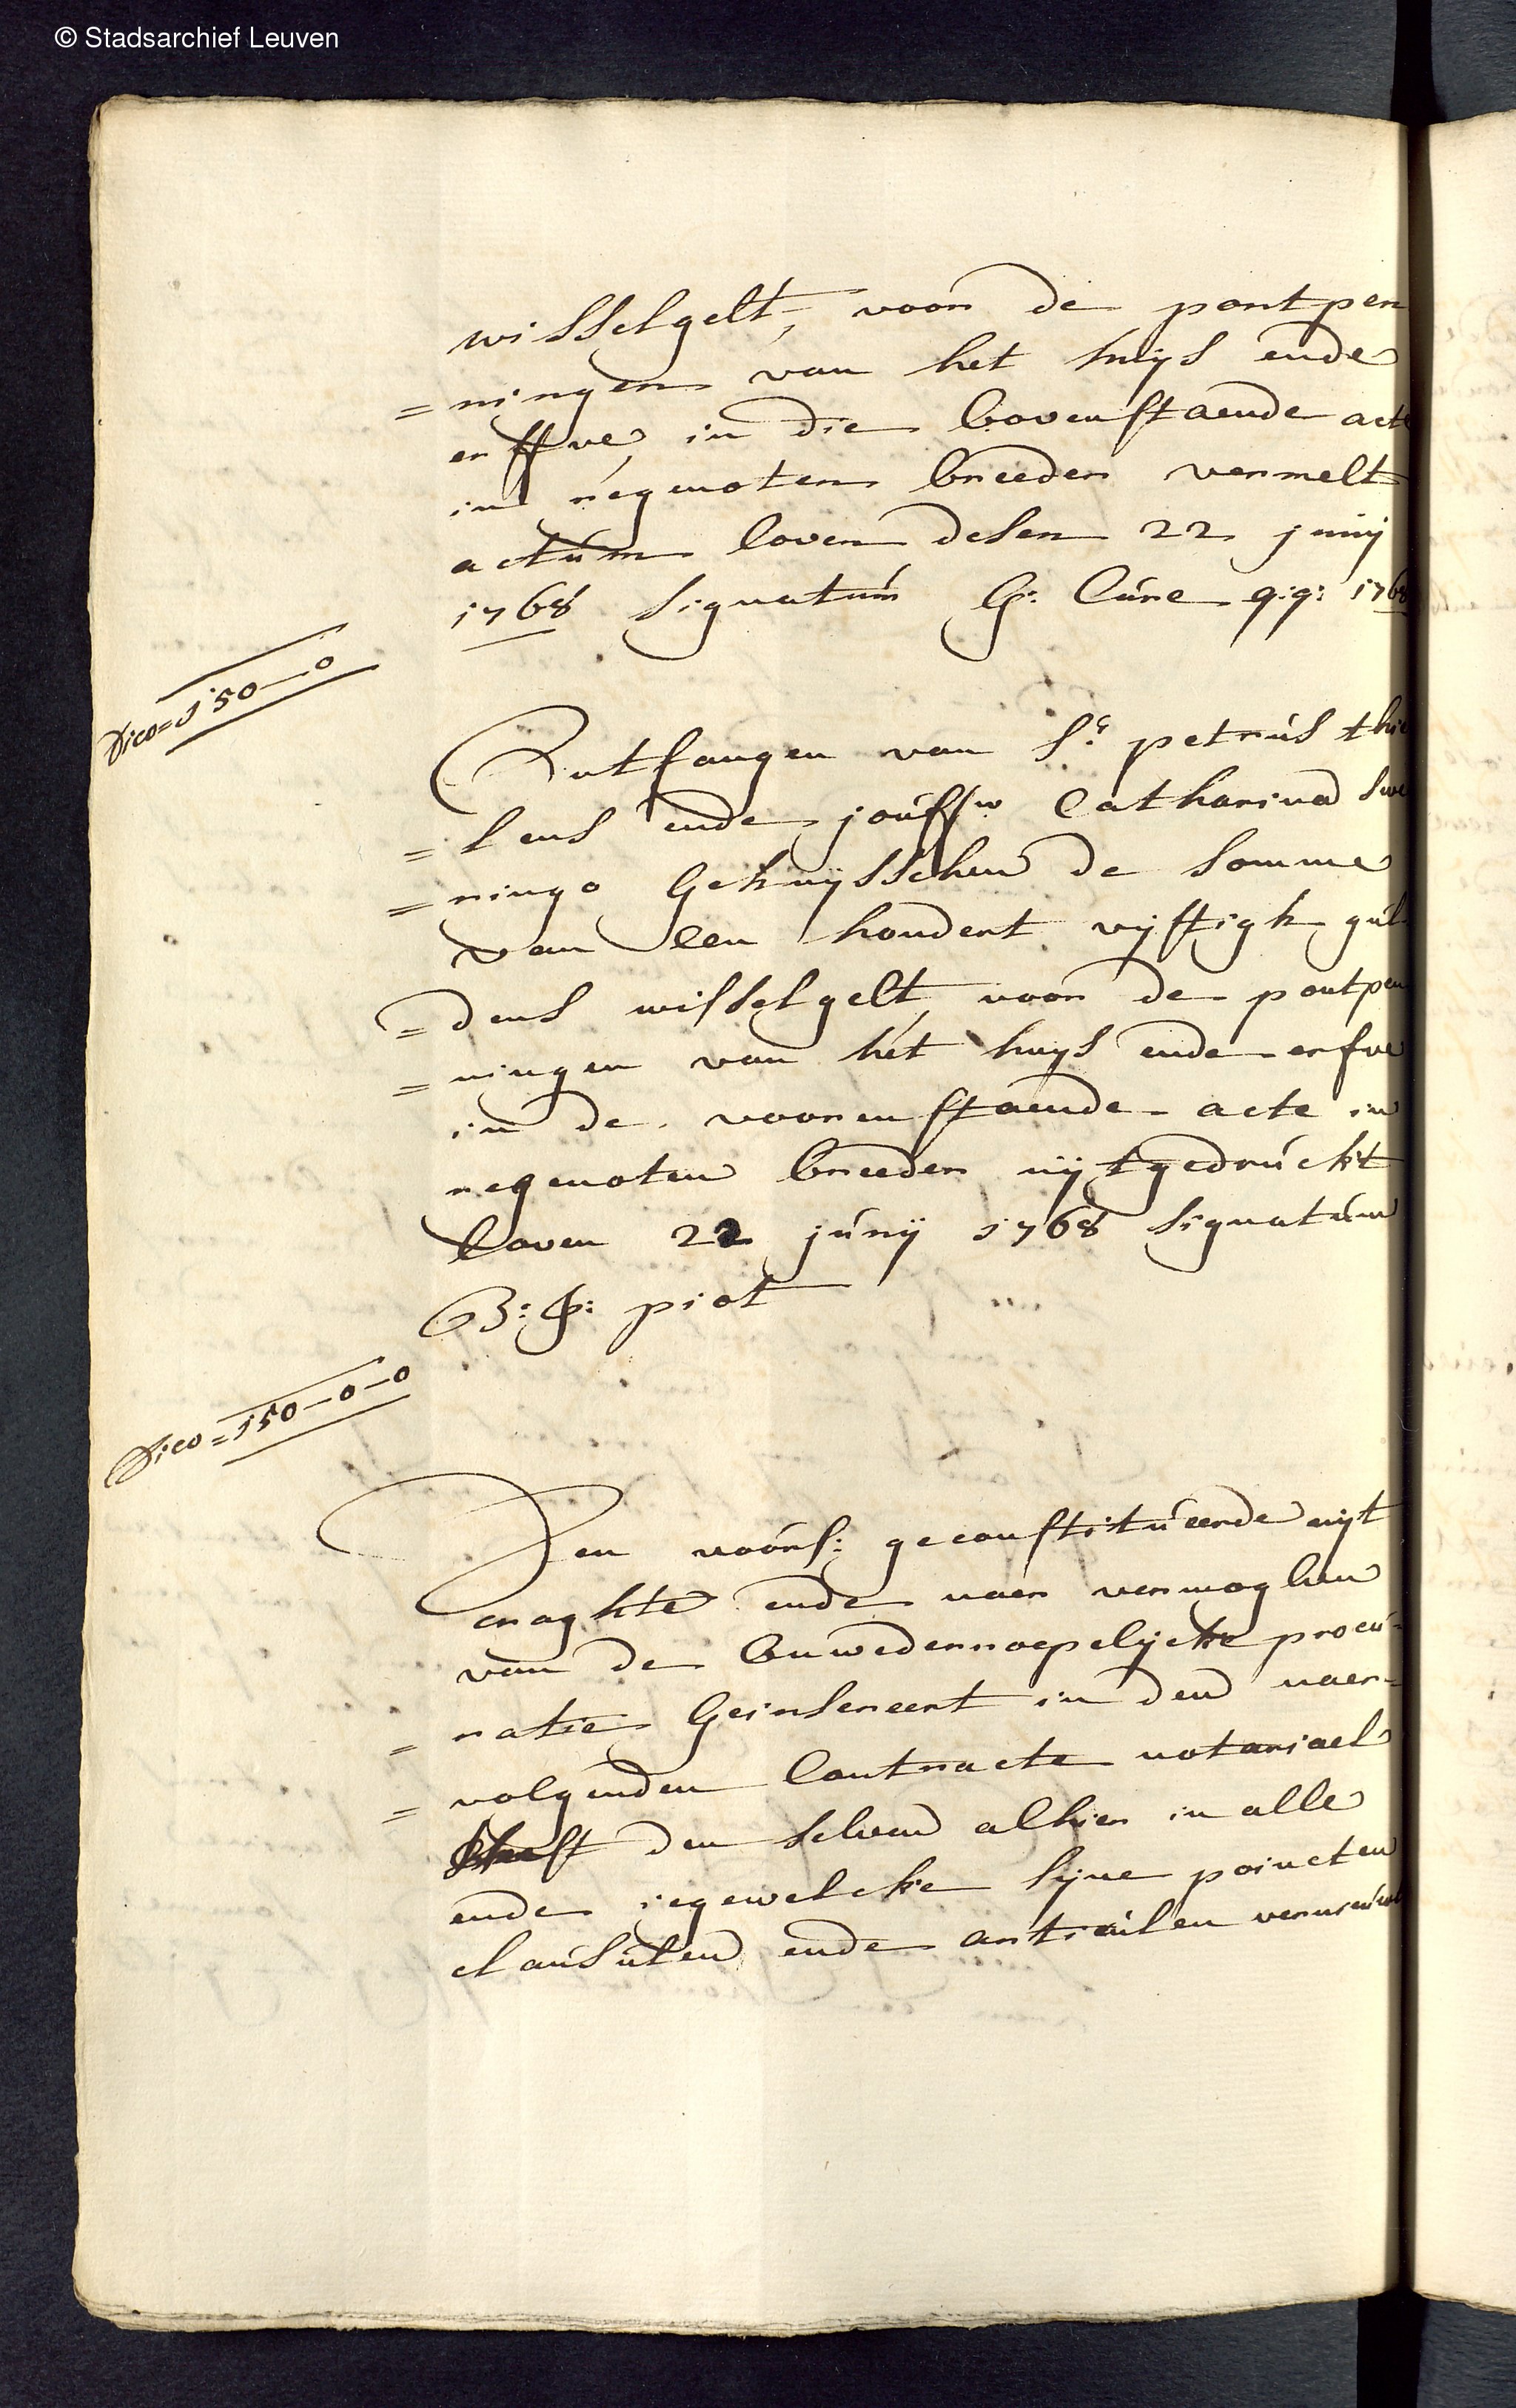 © Stadsarchief Leuven
wisselgelt, voor de pontpen
=ningen van het huijs ende
erffve in die bovenstaende acte
in regenoten breeder vermelt
actum loven desen 22 junij
1768 signatum G: Cune q:q: 1768
dico=150—0
Ontfangen van Sr petrus thie
=lens ende jouffw Catharina Swe
=ringo Gehuijsschen de somme
van een hondert vijftigh gul
=dens wisselgelt voor de pontpen
=ningen van het huijs ende erfve
in de voorenstaende acte in
regenoten breeder uijtgedruckt
loven 22 junij 1768 signatum
B: J: piot
dico=150—0—0
Den voors: geconstitueerde uijt
craghte ende naer vermoghen
van de onwederroepelijcke procu-
=ratie Geinsereert in den naer-
=volgenden Contracte notariael
heeft den selven alhier in alle
ende iegewelcke sijne poincten
clausulen ende articulen